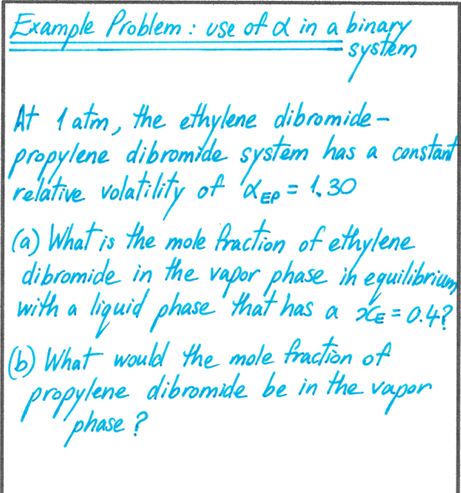 Example Problem : use of α in a binary
system
At 1 atm, the ethylene dibromide-
propylene dibromide system has a constant
relative volatility of αEP = 1.30
(a) What is the mole fraction of ethylene
dibromide in the vapor phase in equilibrium
with a liquid phase that has a xE = 0.4?
(b) What would the mole fraction of
propylene dibromide be in the vapor
phase ?